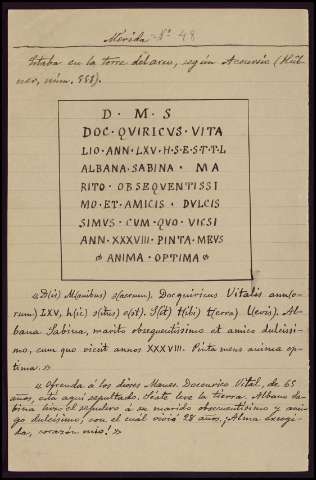 Mérida - Nº 48
Estaba en la torre del arco, según Accursio (Hüb-
ner, núm. 558).
D · M · S
DOC·QVIRICVS·VITA
LIO·ANN·LXV·H·S·E·S·T·T·L
ALBANA·SABINA · MA
RITO·OBSEQVENTISSI
MO·ET·AMICIS · DVLCIS
SIMVS·CVM·QVO·VICSI
ANN·XXXVIII·PINTA·MEVS
ANIMA·OPTIMA
«D(is) M(anibus) s(acrum). Docquiricus Vitalis ann(o-
rum) LXV, h(ic) s(itus) e(st). S(it) t(ibi) t(erra) l(evis). Al-
bana Sabina, marito obsequentissimo et amico dulcissi-
mo, cum quo vicsit annos XXXVIII. Pinta meus anima op-
tima.»
«Ofrenda á los dioses Manes. Docourico Vital, de 65
años, está aquí sepultado. Séate leve la tierra. Albana Sa-
bina hizo el sepulcro á su marido obsecuentísimo y ami-
go dulcísimo, con el cuál vivió 28 años. ¡Alma escogi-
da, corazón mío!»